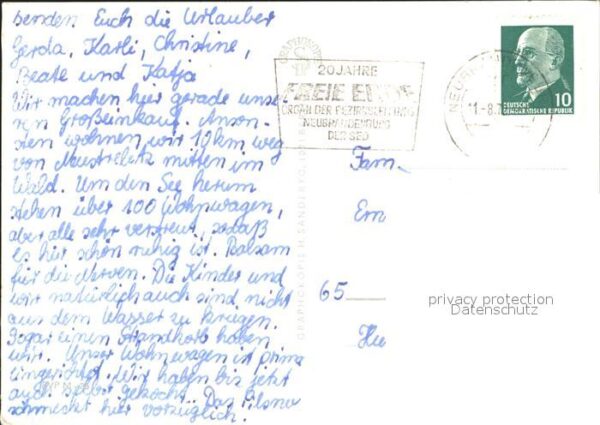 senden Euch die Urlauber
Gerda, Karli, Christine,
Beate und Katja
Wir machen hier gerade unse-
ren Großeinkauf. Anson-
sten wohnen wir 10 km weg
von Neustrelitz mitten im
Wald. Um den See herum
stehen über 100 Wohnwagen,
aber alle sehr verstreut, sodaß
es hier schön ruhig ist. Balsam
für die Nerven. Die Kinder und
wir natürlich auch sind nicht
aus dem Wasser zu kriegen.
Sogar einen Strandkorb haben
wir. Unser Wohnwagen ist prima
eingerichtet. Wir haben bis jetzt
auch selber gekocht. Das Pilsner
schmeckt hier vorzüglich.
GRAPHOKOPIE H. SANDER KG,
20 JAHRE
FREIE ERDE
ORGAN DER BEZIRKSLEITUNG
NEUBRANDENBURG
DER SED
DEUTSCHE
DEMOKRATISCHE REPUBLIK
10
Fam.
Ern
65
Hu
privacy protection
Datenschutz